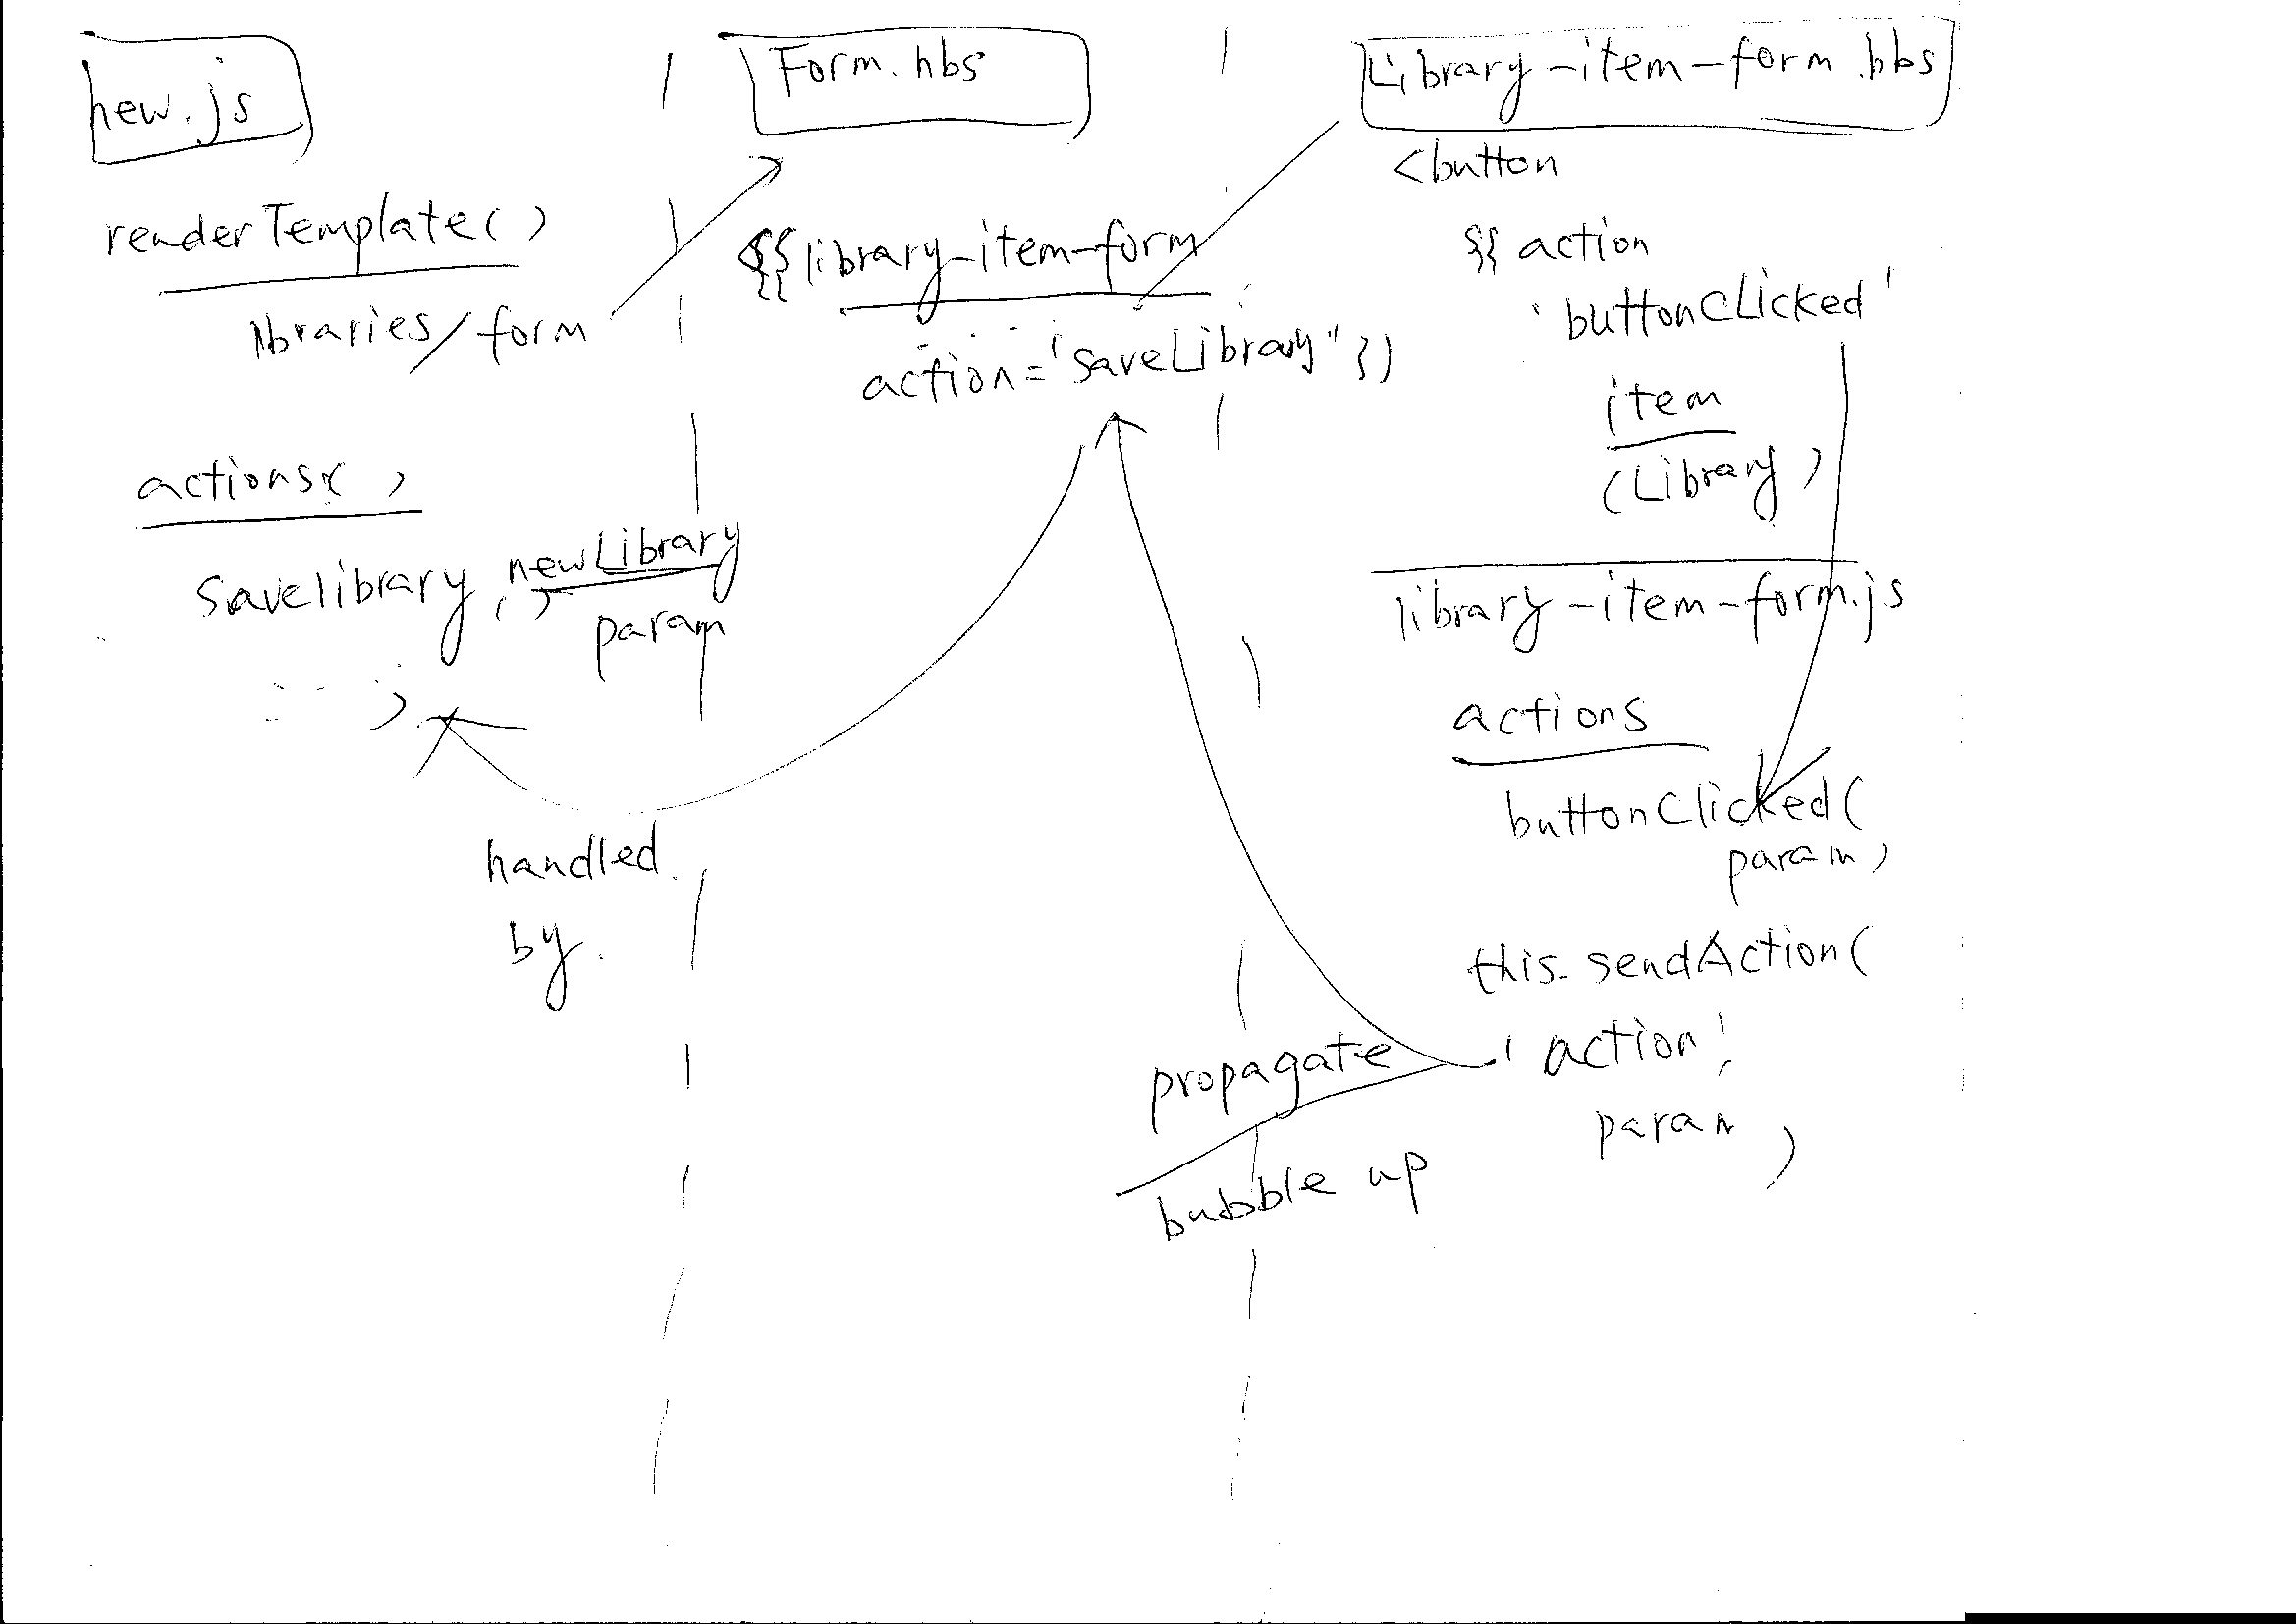 new.js
renderTemplate()
libraries/form
actions( )
savelibrary( )
newLibrary
param
)
handled
by.
Form.hbs
{{library-item-form
. . . . .
action='saveLibrary"}}
Library-item-form.hbs
<button
{{action
'buttonClicked'
item
(Library)
library-item-form.js
actions
buttonClicked(
param)
this.sendAction(
'action',
param
)
propagate
bubble up